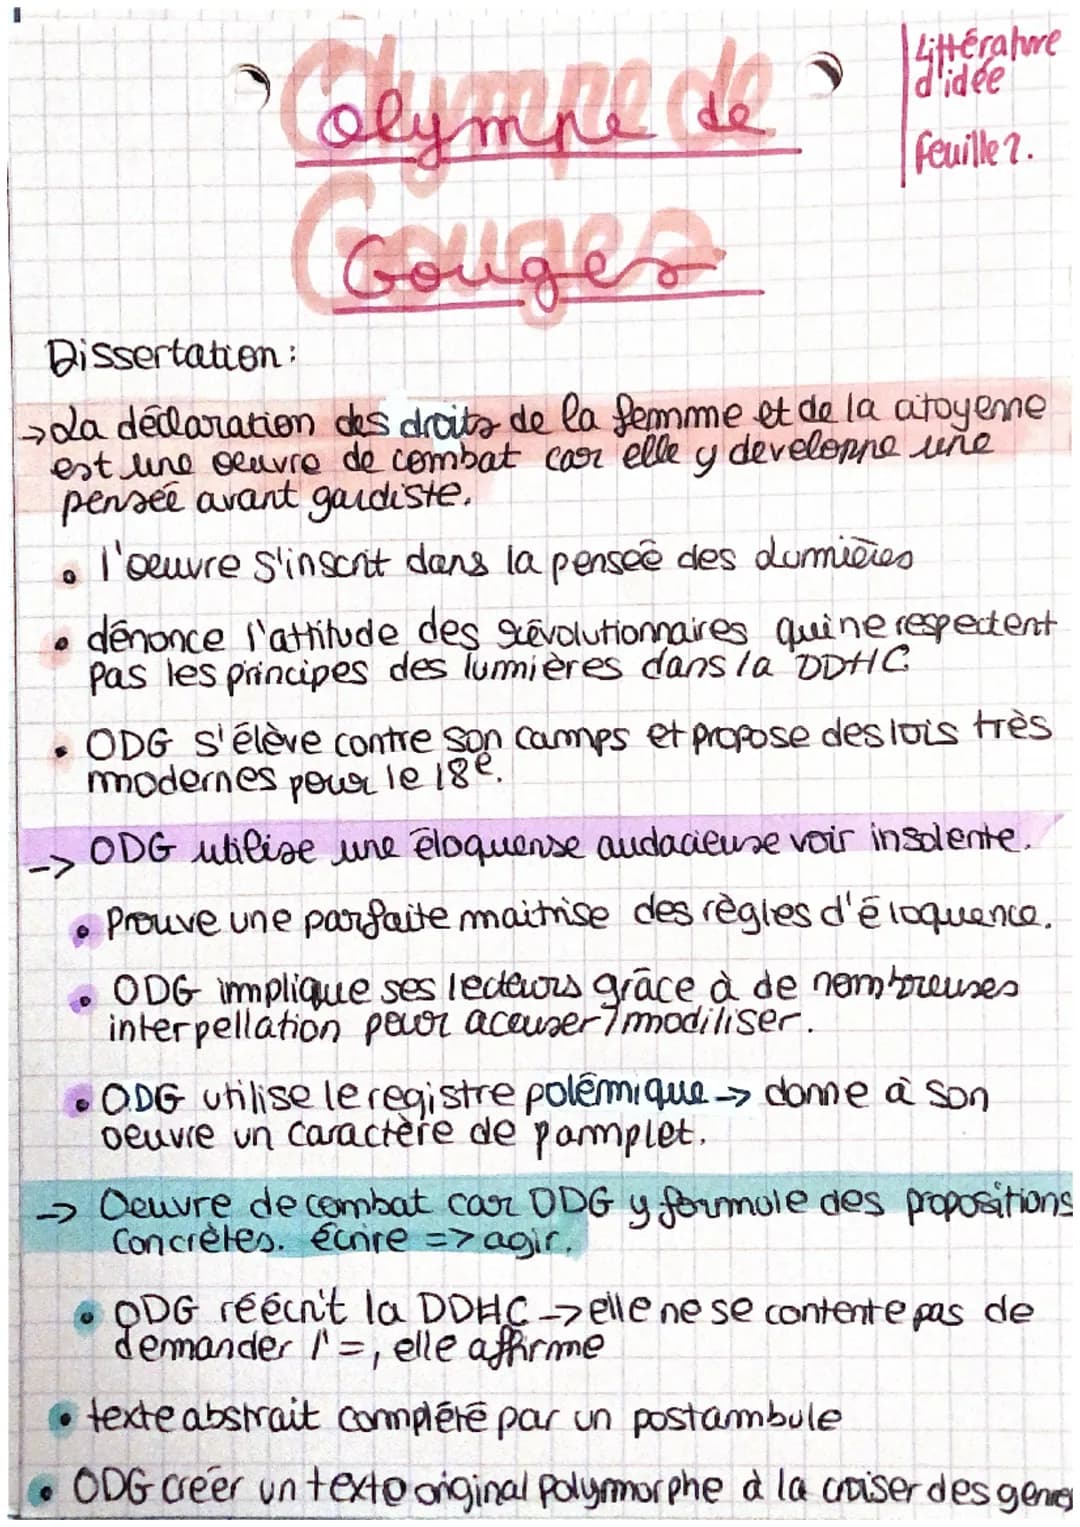 Littérature
d'idée
feuille 2.
Olympe de
olympe de
Gouges
Gouges
Dissertation:
→ La déclaration des droits de la femme et de la citoyenne
est une oeuvre de combat car elle y developpe une
pensée avant gardiste.
• l'oeuvre s'inscrit dans la pensée des lumières
• dénonce l'attitude des révolutionnaires qui ne respectent
pas les principes des lumières dans la DDHC
• ODG s'élève contre son camps et propose des lois très
modernes pour le 18e.
-> ODG utilise une éloquense audacieuse voir insolente.
• Prouve une parfaite maitrise des règles d'éloquence.
• ODG implique ses lecteurs grâce à de nombreuses
interpellation pour accuser/modiliser.
• ODG utilise le registre polémique -> donne à son
oeuvre un caractère de pamplet.
-> Oeuvre de combat car ODG y formule des propositions
concrètes. écrire => agir.
• ODG réécrit la DDHC -> elle ne se contente pas de
demander l'=, elle affirme
• texte abstrait complété par un postambule
• ODG créer un texte original polymorphe à la croiser des genres